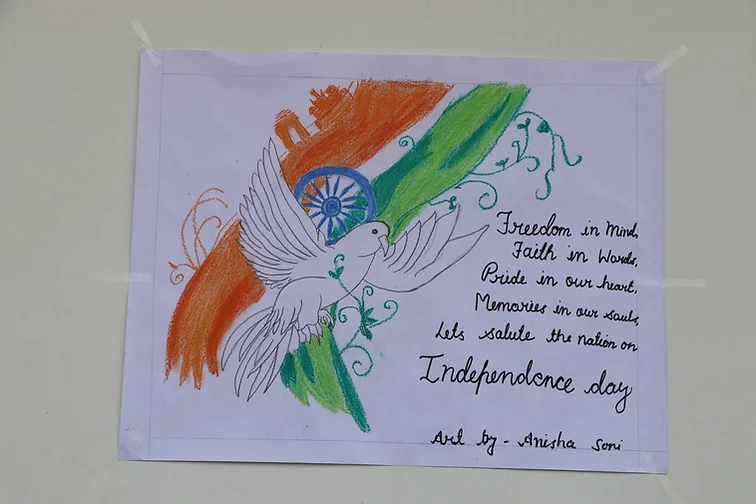 Freedom in Mind,
Faith in Words,
Pride in our heart,
Memories in our souls,
Lets salute the nation on
Independence day
Art by - Anisha Soni